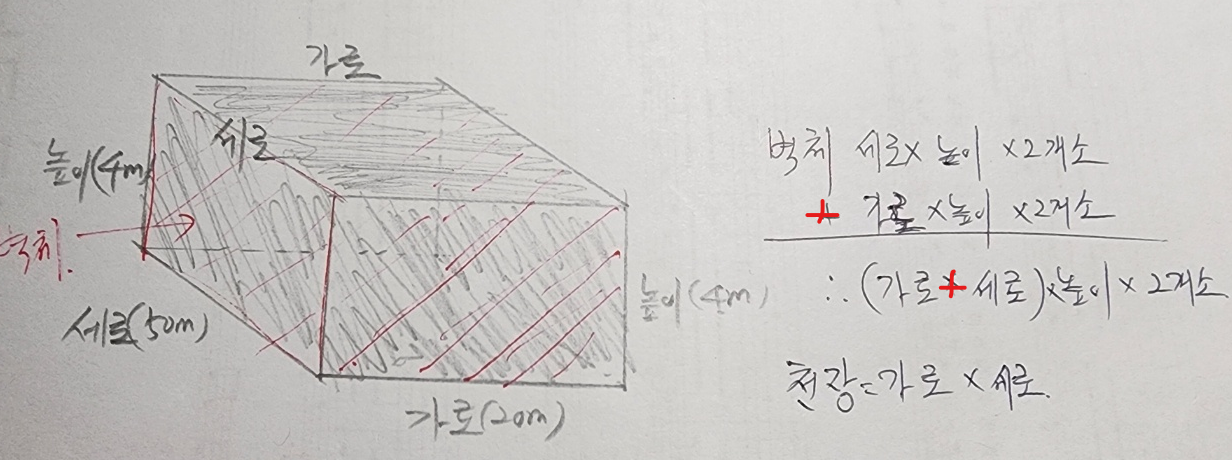 가로
세로
높이(4m)
벽체.
세로(50m)
높이(4m)
가로(20m)
벽체 세로x 높이 x2개소
+ 가로 x높이 x2개소
∴ (가로+세로)x높이 x 2개소
천장=가로 x 세로.